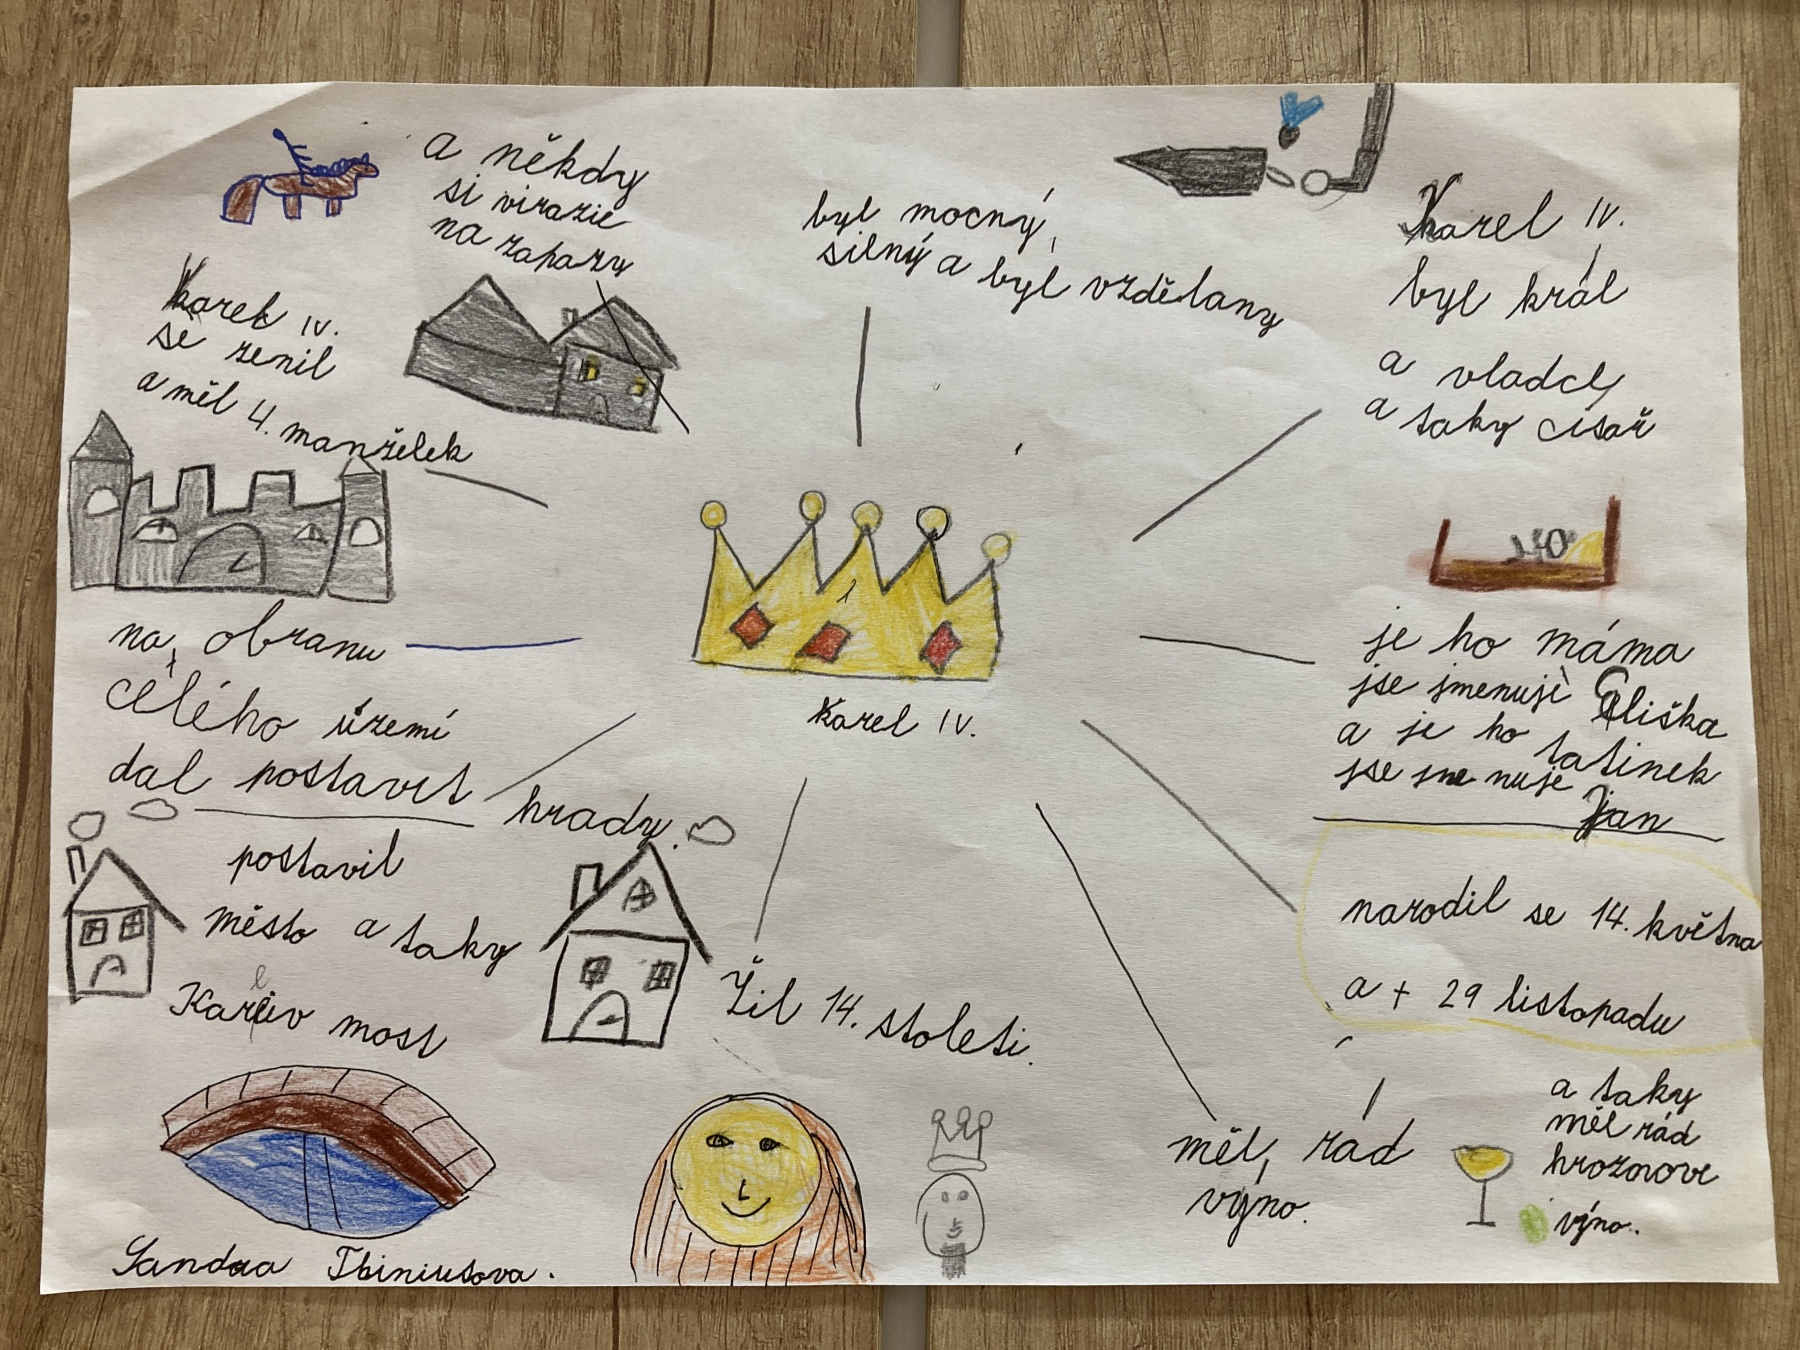 a někdy
si virazie
na zapazy
byl mocný,
silný a byl vzdělany
Karel IV.
byl král
a vladcl,
a taky císař
Karel IV.
se zenil
a měl 4. manželek
na obranu
célého území
dal postavit
hrady.
Karel IV.
je ho máma
jse jmenují Eliška
a je ho tatinek
jse jme nuje
Jan
postavil
město a taky
Karluv most
narodil se 14. května
a + 29 listopadu
Žil 14. stoleti.
měl rád
výno.
a taky
měl rád
hroznove
výno.
Sandra